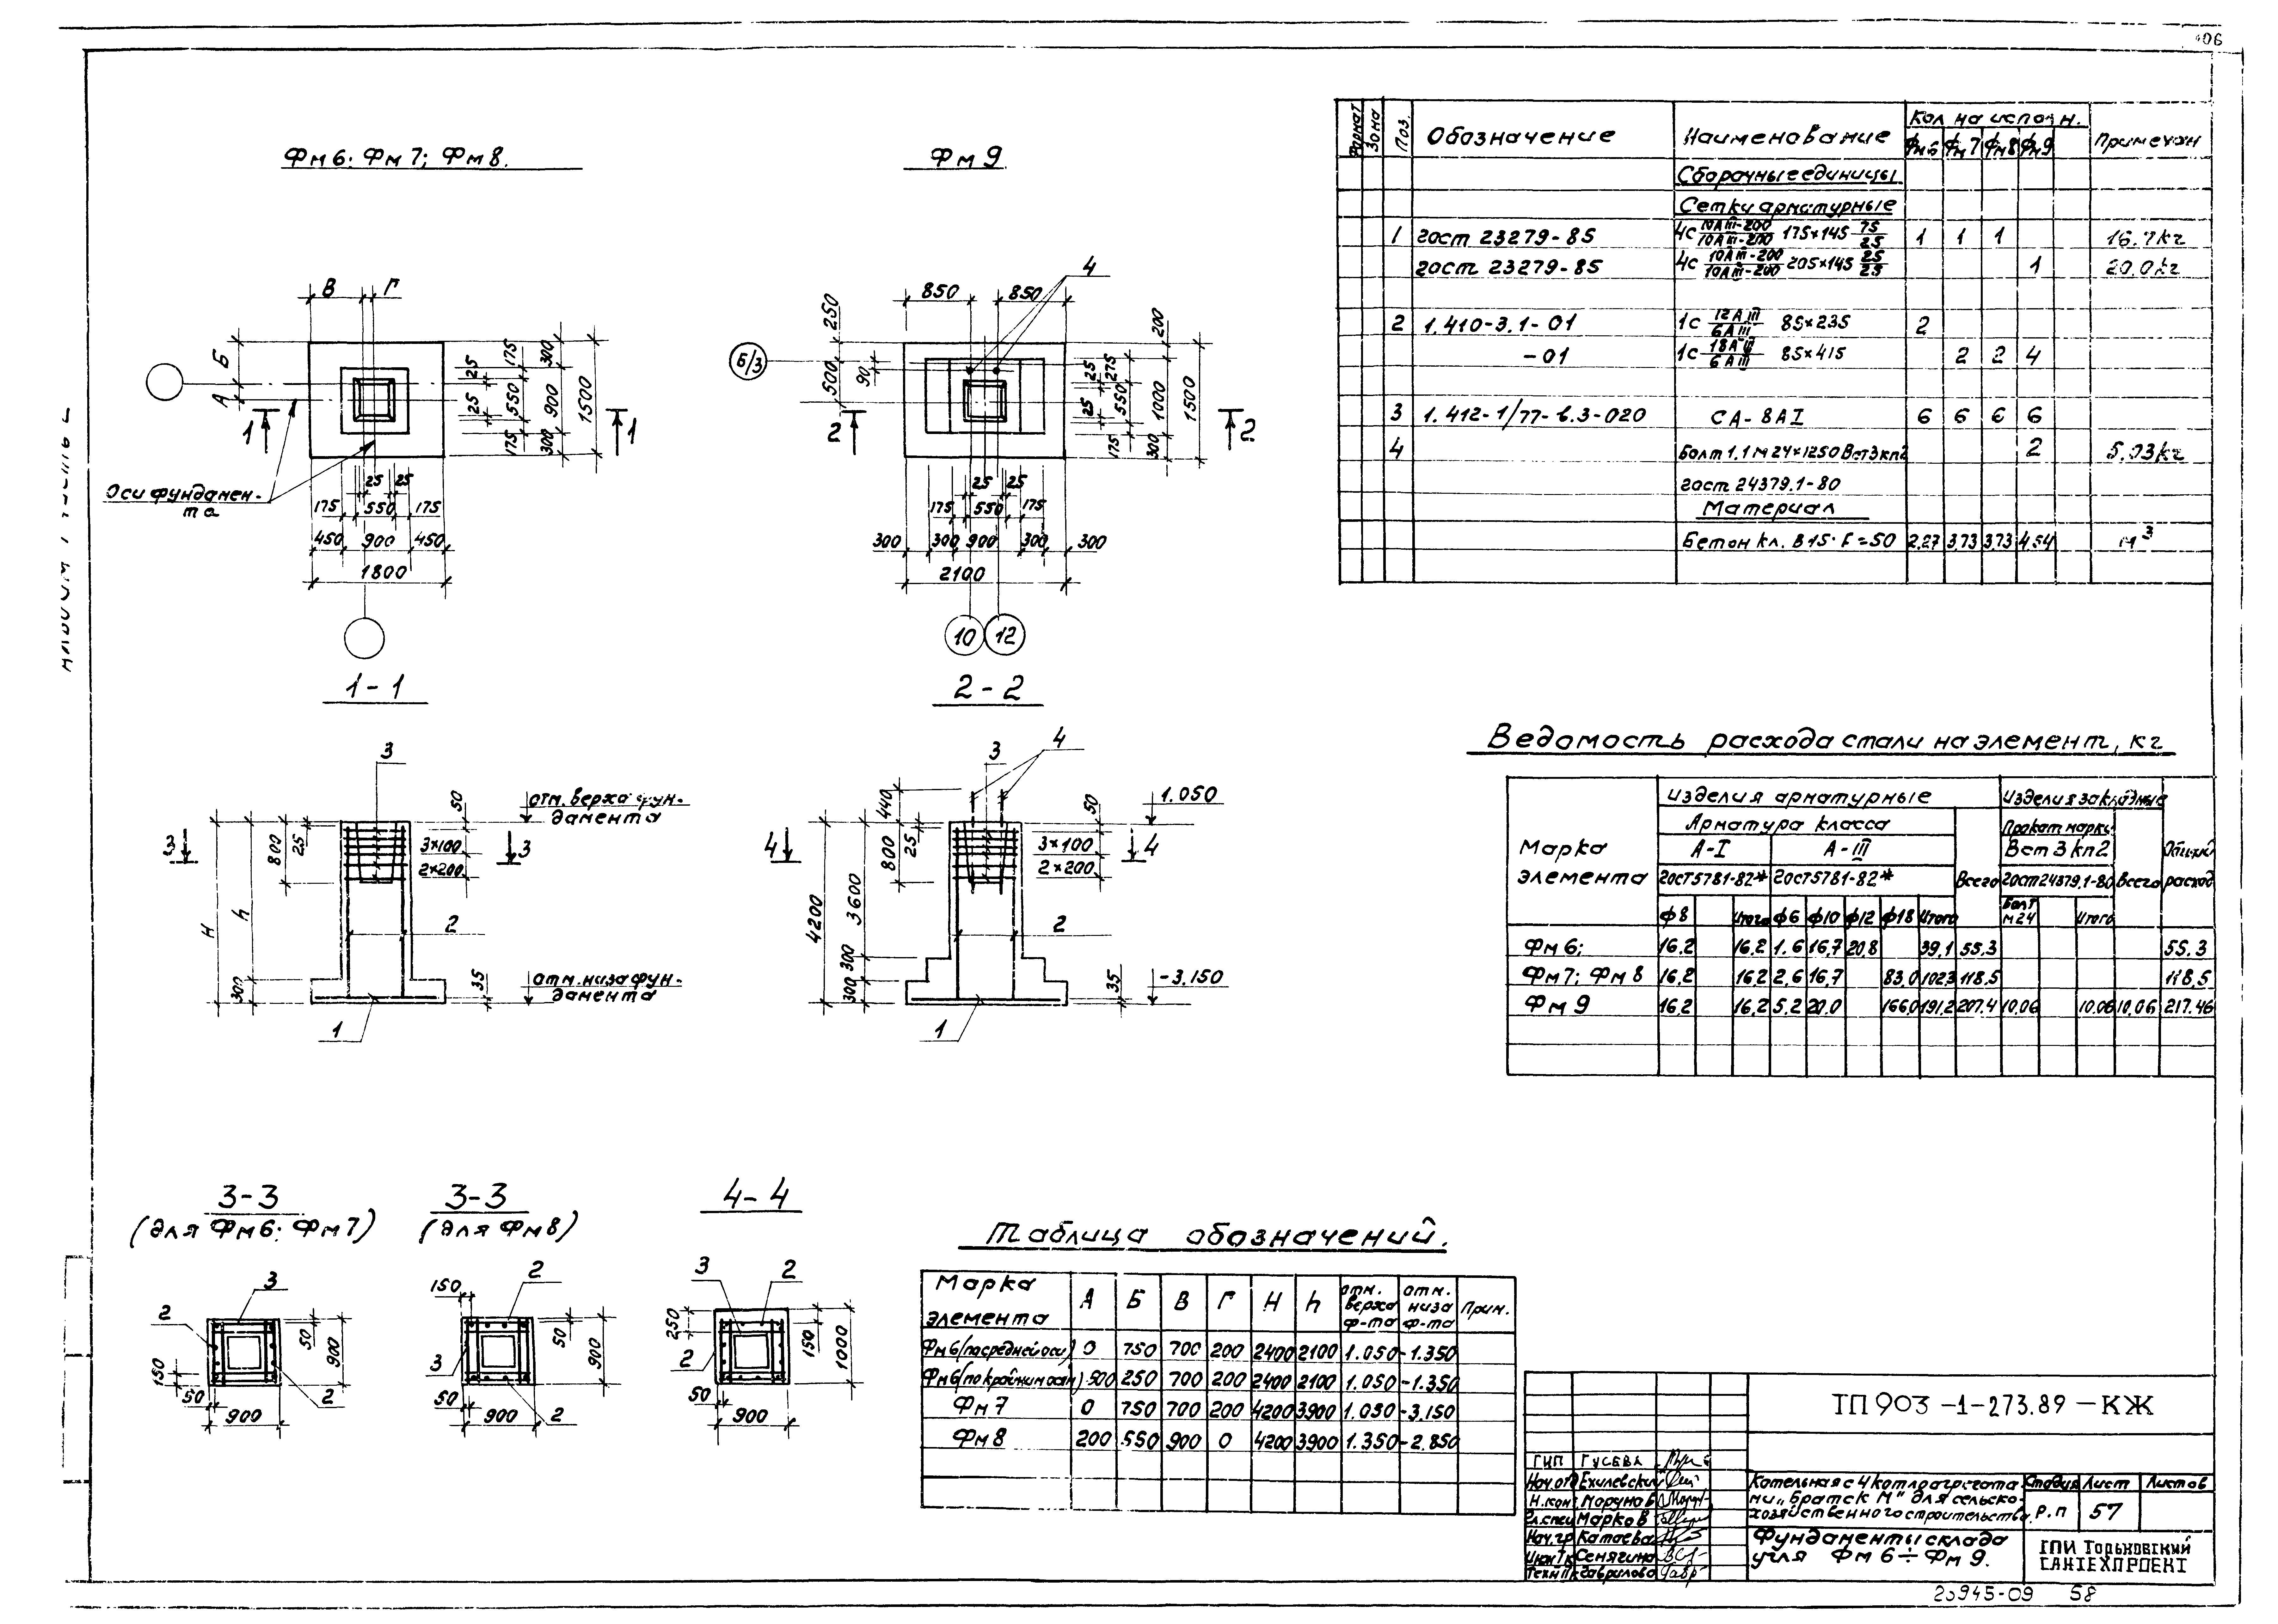 406
Фм6; Фм7; Фм8.
Фм9
В Г
Б
А
25
175
300
25
550
900
1500
25
175
300
1
1
Оси фундамен-
та
25 25
175 550 175
450 900 450
1800
4
850 850
250
500
90
Б/3
200
25
275
550
1000
1500
25
175
300
2
2
25 25
175 550 175
300 300 900 300 300
2100
10 12
1-1
3
50
отм. верха фун-
дамента
800
25
3
3
3×100
2×200
H
h
2
300
35
отм. низа фун-
дамента
1
2-2
3
4
440
50
1.050
800
25
4
4
3×100
2×200
4200
3600
2
300
300
35
-3.150
1
3-3
(для Фм6; Фм7)
3
2
50
900
150
2
50
900
3-3
(для Фм8)
150
2
50
900
3
50
900
2
4-4
3
2
250
150
1000
2
50
900
Формат Зона Поз. Обозначение Наименование Кол на исполн. Примечан
Фм6 Фм7 Фм8 Фм9
Сборочные единицы
Сетки арматурные
1 гост 23279-85 4с 10АIII-200/10АIII-200 175×145 75/25 1 1 1 16.7кг
гост 23279-85 4с 10АIII-200/10АIII-200 205×145 25/25 1 20.0кг
2 1.410-3.1-01 1с 12АIII/6АIII 85×235 2
-01 1с 18АIII/6АIII 85×415 2 2 4
3 1.412-1/77-в.3-020 СА-8АI 6 6 6 6
4 Болт 1.1м24×1250 Вст3кп2 2 5.03кг
гост 24379.1-80
Материал
Бетон кл. В15; F=50 2,27 3,73 3,73 4,54 м3
Ведомость расхода стали на элемент, кг
Марка элемента Изделия арматурные Изделия закладные Общий расход
Арматура класса Всего Прокат марки Всего
А-I А-III Вст3кп2
гост5781-82* гост5781-82* гост24379.1-80
ф8 Итого ф6 ф10 ф12 ф18 Итого Болт м24 Итого
Фм6; 16.2 16.2 1.6 16,7 20.8 39,1 55.3 55.3
Фм7; Фм8 16.2 16.2 2,6 16,7 83.0 102,3 118.5 118.5
Фм9 16.2 16.2 5.2 20.0 166.0 191.2 207.4 10.06 10.06 10.06 217.46
Таблица обозначений.
Марка элемента А Б В Г H h отм. верха ф-та отм. низа ф-та Прим.
Фм6(по средней оси) 0 750 700 200 2400 2100 1.050 -1.350
Фм6(по крайним осям) 500 250 700 200 2400 2100 1.050 -1.350
Фм7 0 750 700 200 4200 3900 1.050 -3.150
Фм8 200 550 900 0 4200 3900 1.350 -2.850
ТП903-1-273.89-КЖ
ГИП Гусева
Нач.отд Ехилевский
Н.кон
Гл.спец Марков
Нач.гр Катаева
Сенягина
Гаврилова
Котельная с 4 котлоагрегата-
ми „Братск М" для сельско-
хозяйственного строительства.
Стадия Лист Листов
Р.п 57
Фундаменты склада
угля Фм6÷Фм9.
ГПИ Горьковский
САНТЕХПРОЕКТ
23945-09 58